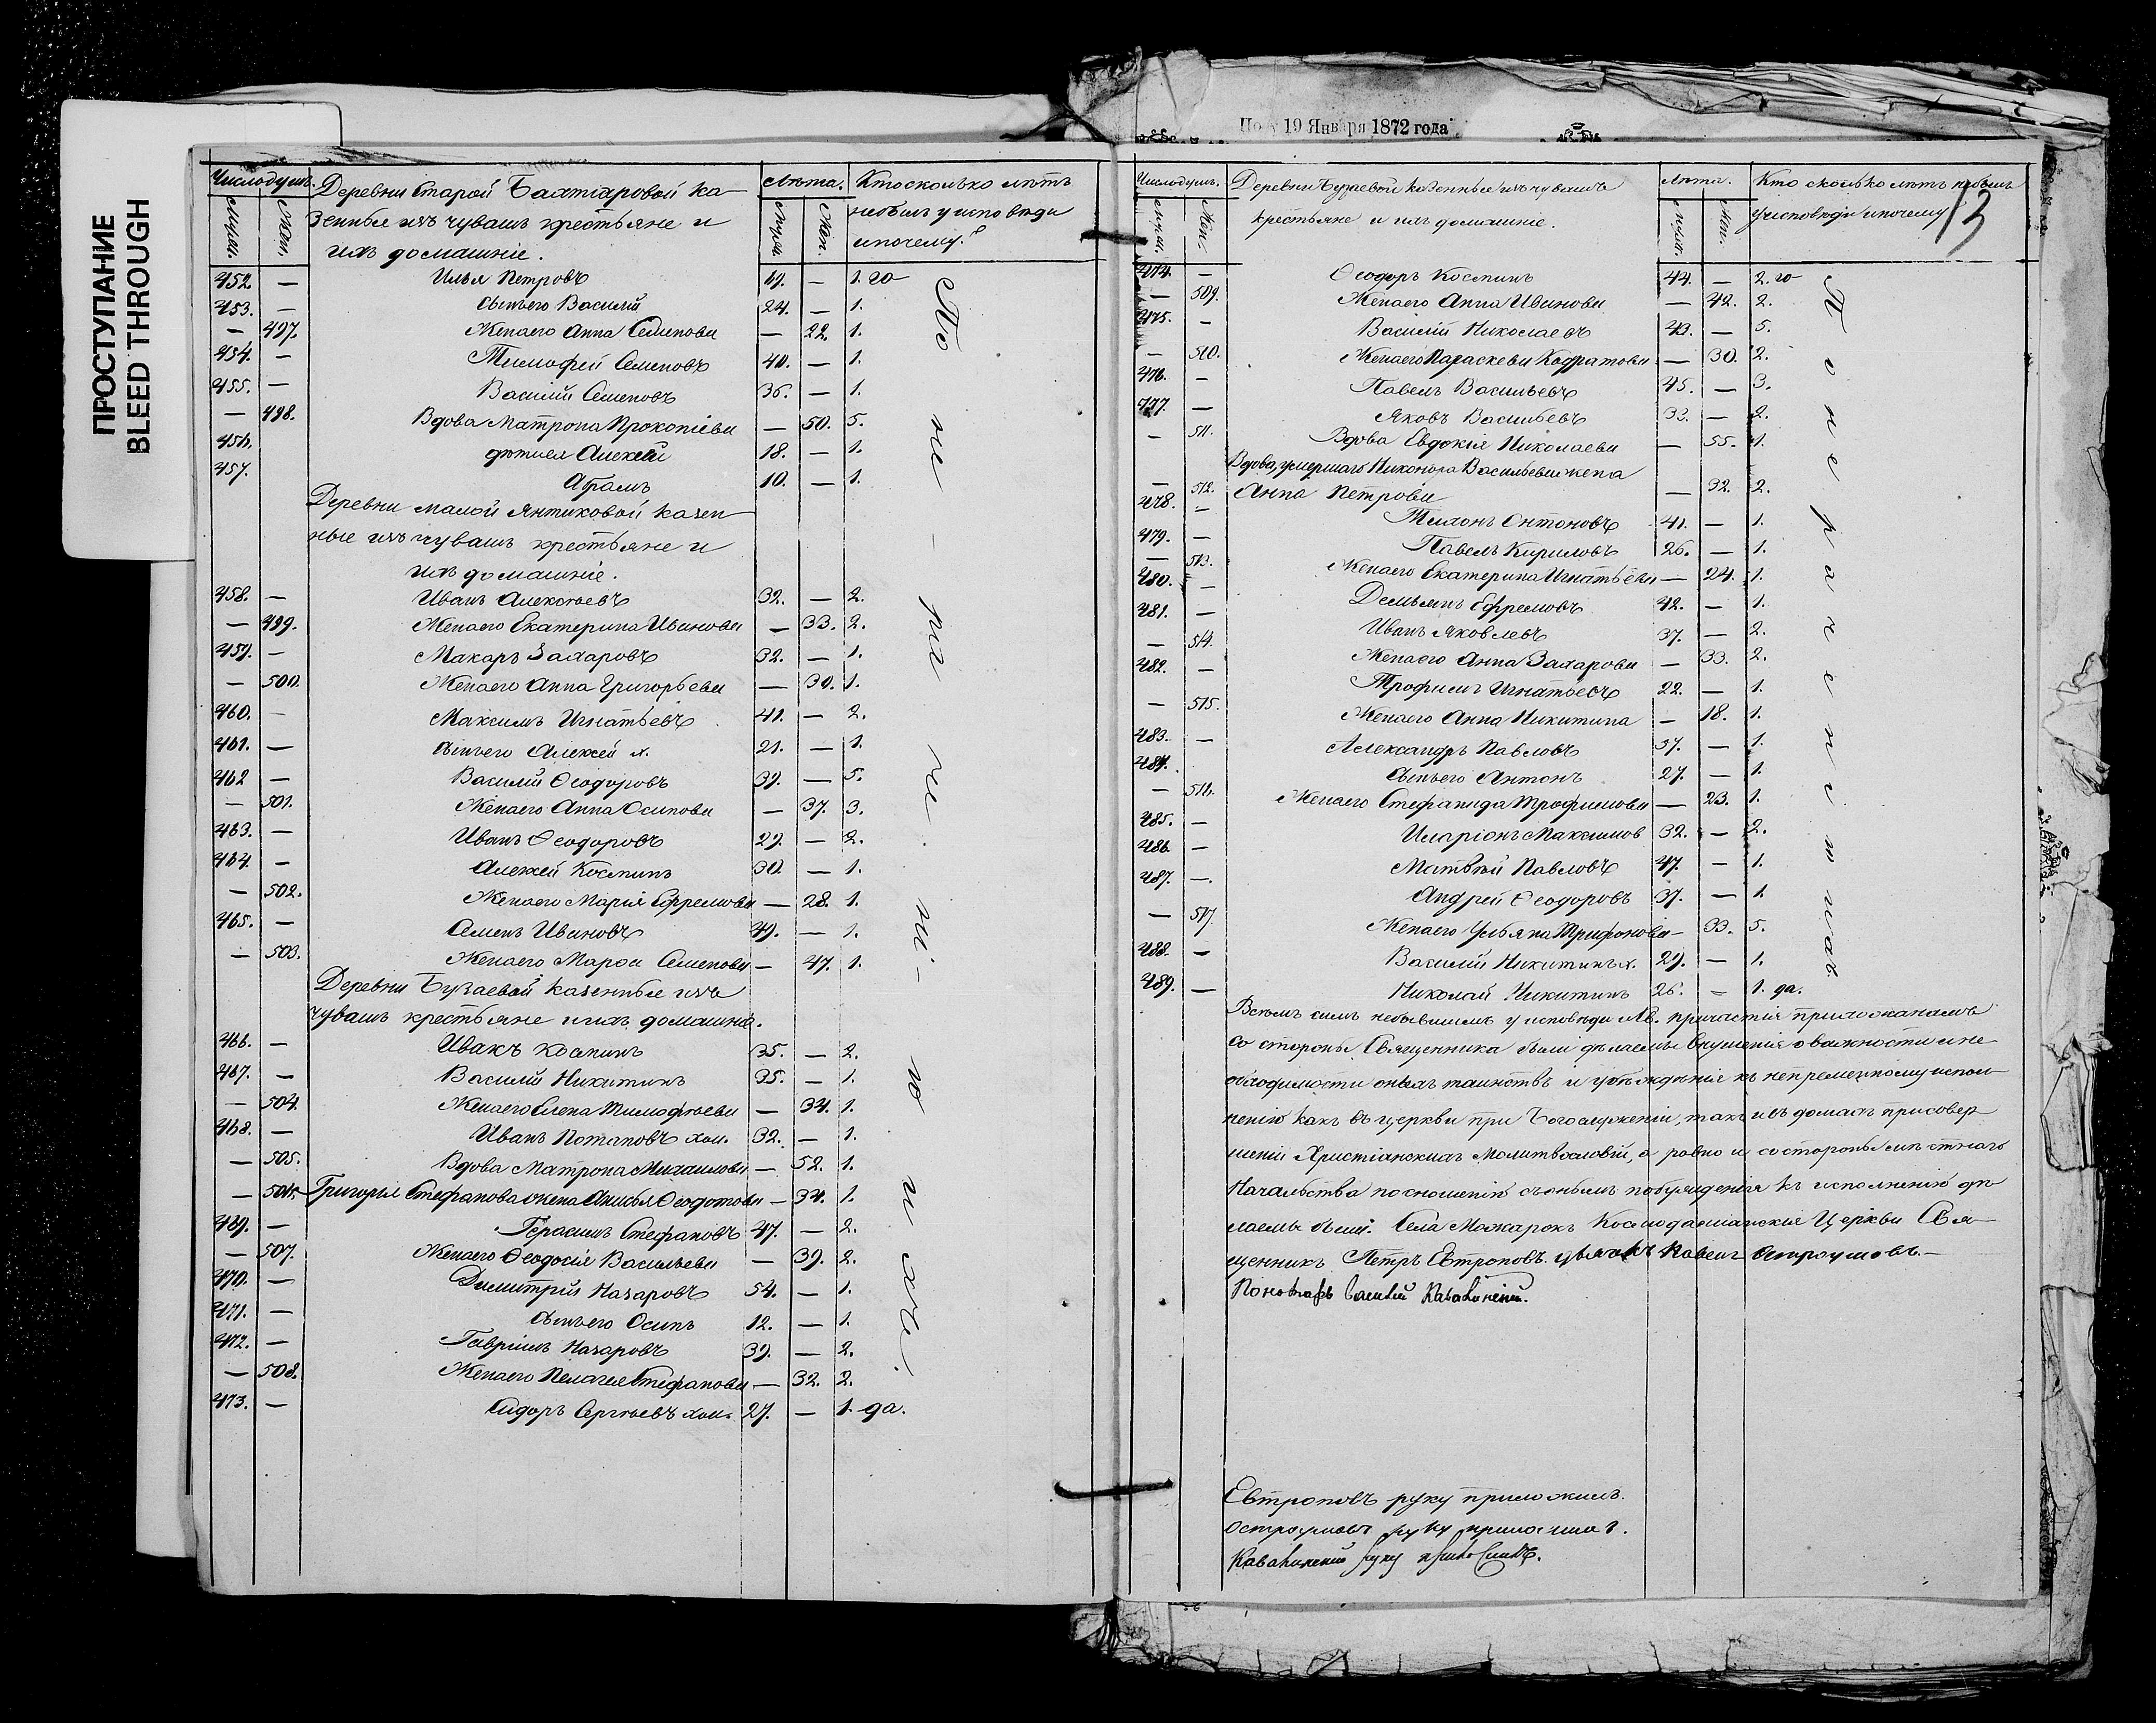 ПРОСТУПАНИЕ
BLEED THROUGH
По 19 Января 1872 года
Число душъ. Деревни Старой Бахтiаровой ка- Лѣта. Кто сколько лѣтъ
Муж. Жен. зенные изъ чувашъ крестьяне и Муж. Жен. небылъ у исповѣди
ихъ домашніе. и почему?
452. — Илья Петровъ — 1. го
453. — Сынъ его Василій 24. — 1.
— 497. Жена его Анна Семенова — 22. 1.
454. — Тимофей Семеновъ 40. — 1.
455. — Василій Семеновъ 36. — 1.
— 498. Вдова Матрона Прокопіева — 50. 5.
456. дѣти ея Алексѣй 18. — 1.
457. Абрамъ 10. — 1.
Деревни малой Янтиковой казен-
ные изъ чувашъ крестьяне и
ихъ домашніе.
458. — Иванъ Алексѣевъ 32. — 2.
— 499. Жена его Екатерина Иванова — 33. 2.
459. — Макаръ Захаровъ 32. — 1.
— 500. Жена его Анна Григорьева — 30. 1.
460. — Максимъ Игнатьевъ 41. — 2.
461. — Сынъ его Алексѣй х. 21. — 1.
462 — Василій Ѳеодоровъ 39. — 5.
— 501. Жена его Анна Осипова — 37. 3.
463. — Иванъ Ѳеодоровъ 29. — 2.
464. — Алексѣй Козминъ 30 — 1.
— 502. Жена его Марія Ефремова — 28. 1.
465. — Семенъ Ивановъ 49. — 1.
— 503. Жена его Марѳа Семенова — 47. 1.
Деревни Бузаевой казенные изъ
чувашъ крестьяне и ихъ домашніе.
466. — Иванъ Козминъ 35. — 2.
467. — Василій Никитинъ 35. — 1.
— 504. Жена его Елена Тимофѣева — 34. 1.
468. — Иванъ Потаповъ хол. 32. — 1.
— 505. Вдова Матрона Михаилова — 52. 1.
— 506. Григорія Стефанова жена Анисья Ѳеодотова — 34. 1.
469. — Герасимъ Стефановъ 47. — 2.
— 507. Жена его Ѳеодосія Васильева — 39. 2.
470. — Димитрій Назаровъ 54. — 1.
471. — Сынъ его Осипъ 12. — 1.
472. — Гавріилъ Назаровъ 39. — 2.
— 508. Жена его Пелагея Стефанова — 32. 2.
473. — Сидоръ Сергѣевъ хол. 27. — 1. да.
По не- ра
13
Число душъ. Деревни Бузаевой казенные изъ чувашъ Лѣта. Кто сколько лѣтъ небылъ
Муж. Жен. крестьяне и ихъ домашніе. Муж. Жен. у исповѣди и почему
474. — Ѳеодоръ Козминъ 44. — 2. го
— 509. Жена его Анна Иванова — 42. 2.
475. — Василій Николаевъ 43. — 5.
— 510. Жена его Параскева Кодратова — 30. 2.
476. — Павелъ Васильевъ 45. — 3.
477. — Яковъ Васильевъ 33. — 2.
— 511. Вдова Евдокія Николаева — 55. 1.
Вдова, умершаго Никонора Васильева жена
— 512. Анна Петрова — 32. 2.
478. — Тихонъ Антоновъ 41. — 1.
479. — Павелъ Кириловъ 26. — 1.
— 513. Жена его Екатерина Игнатьева — 24. 1.
480. — Демьянъ Ефремовъ 42. — 1.
481. — Иванъ Яковлевъ 37. — 2.
— 514. Жена его Анна Захарова — 33. 2.
482. — Трофимъ Игнатьевъ 22. — 1.
— 515. Жена его Анна Никитина — 18. 1.
483. — Александръ Павловъ 57. — 1.
484. Сынъ его Антонъ 27. — 1.
— 516. Жена его Стефанида Трофимова — 23. 1.
485. — Иларіонъ Максимов 32. — 2.
486. — Матвѣй Павловъ 47. — 1.
487. — Андрей Ѳеодоровъ 37. — 1.
— 517. Жена его Ульяна Трифонова — 33. 5.
488. — Василій Никитинъ х. 29. — 1.
489. — Николай Никитинъ 26. — 1. да.
По нераченію ихъ
Всѣмъ симъ небывшимъ у исповѣди и Св. причастія прихожанамъ
со стороны Священника были дѣлаемы внушенія о важности и не-
обходимости оныхъ таинствъ и убѣжденія къ непременному испол-
ненію какъ въ церкви при Богослуженіи, такъ и въ домахъ при совер-
шеніи Христіанскихъ Молитвословій, а равно и со стороны мѣстнаго
Начальства по сношенію съ онымъ побужденія къ исполненію дѣ-
лаемы были. Села Можарокъ Космодаміанскія Церкви Свя-
щенникъ Петръ Евтроповъ. Дьяконъ Павелъ Остроумовъ.—
Пономарь Василій
Евтроповъ руку приложилъ.
Остроумовъ руку приложилъ.
руку приложилъ.